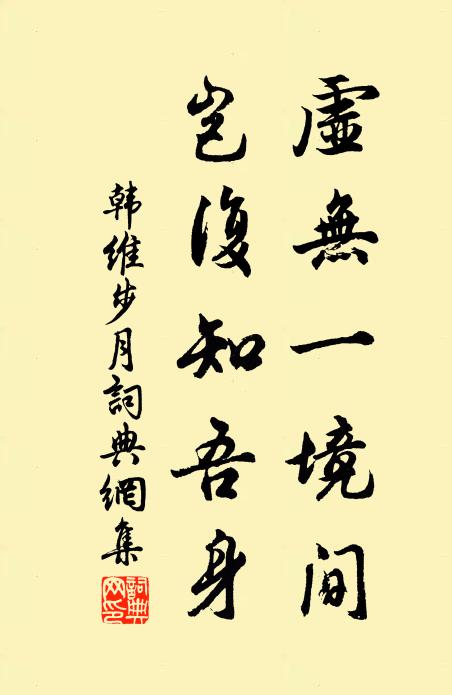 虛無一境間
豈復知吾身
韩維步月詞典網集
詞典网印